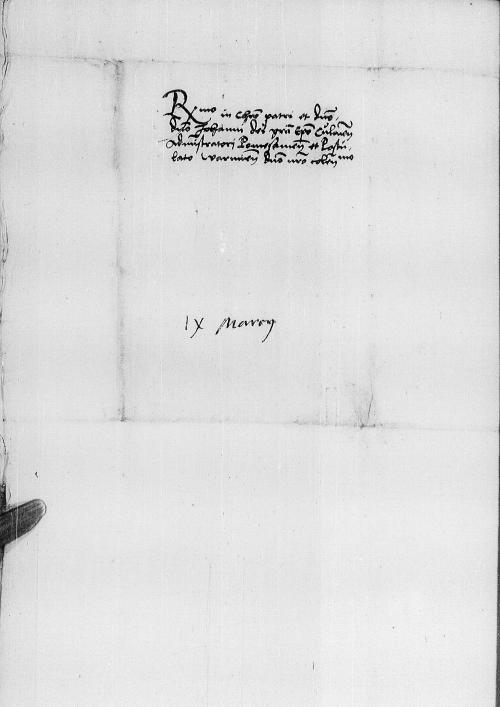 Rmo in Chro patri et dno,
dno Johanni dei gra Epo Culmen
Administratori Pomesanien et Postu-
lato Warmien dno nro colenmo
IX Marcy